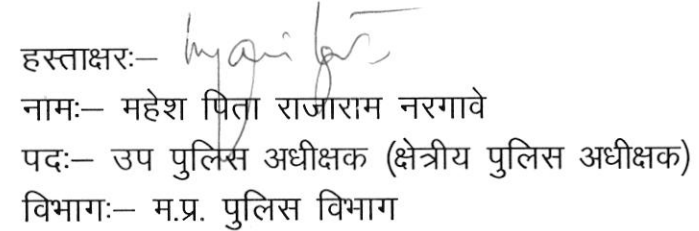 हस्ताक्षरः–
नामः– महेश पिता राजाराम नरगावे
पदः– उप पुलिस अधीक्षक (क्षेत्रीय पुलिस अधीक्षक)
विभागः– म.प्र. पुलिस विभाग